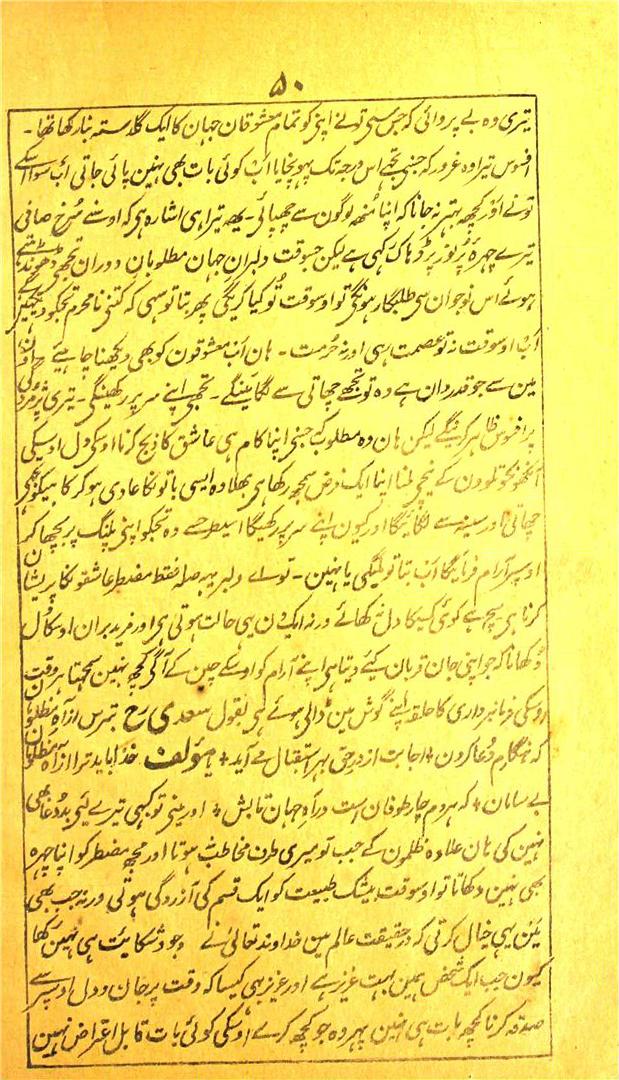 ۵۰
تیری وہ بے پروائی کہ جس سی تونے اپنی کو تمام معشوقان جہان کا ایک گلدستہ بنا رکھا تھا۔
افسوس تیرا وہ غرور کہ جنی تجھے اس درجہ تک پہونچایا اب کوئی بات بھی نہین پائی جاتی اب سوا اسکے
تونے اور کچھ بہتر نہ جانا کہ اپنا منھ لوگون سے چھپائی۔ یہہ تیرا ہی اشارہ ہی کہ اوسنے سُرخ صافی
تیرے چہرۂ پُر نور پر ڈہاک رکہی ہے لیکن جسوقت دلبران جہان مطلوبان دوران تجھی ڈھونڈتے
ہوئے اس نوجوان سی طلبگار ہونگی تو اوسوقت تُو کیا کریگی پھر بتا تو سہی کہ کتنی نامحرم تجکو دیکھینگے
اب اوسوقت نہ تو عصمت رہی اور نہ حُرمت۔ ہان اب معشوقون کو بھی دیکھنا چاہیے
مین سے جو قدردان ہے وہ تو تجھے چھاتی سے لگائینگے۔ تجھی اپنے سر پر رکھینگی۔ تیری
پر افسوس ظاہر کرینگے لیکن ہان وہ مطلوب کہ جنی اپنا کام ہی عاشق کا ذبح کرنا اوسکی دل اوسیکی
آنکھونکو تلوون کے نیچی ملنا اپنا ایک فرض سمجھ رکھا ہی بھلا وہ ایسی باتونکا عادی ہو کر کاہیکو تجھی
چھاتی اور سینہ سے لگائیگا اور کیون اپنے سر پر رکھیگا اسیطرحسے وہ تجکو اپنی پلنگ پر بچھا کر
اوسپر آرام فرمائیگا اب بتا تو لیگی یا نہین۔ تو اے دلبر یہہ صلہ فقط مضطر عاشقونکا پریشان
کرنا ہی سچ ہے کوئی کسیکا دل نہ دکھائے ورنہ ایکدن یہی حالت ہوتی ہی اور مزید بران اوسکا دل
دُکھانا کہ جو اپنی جان قربان کئے دیتا ہی اپنے آرام کو اوسکے چین کے آگی کچھ نہین سمجھتا ہر وقت
اوسکی فرمانبرداری کا حلقہ اپنے گوش مین ڈالی ہوئے ہی بقول سعدی رح بترس از آہ مظلومان
کہ ہنگام دُعا کردن ٭ اجابت از در حق بہر استقبال می آید ٭ مؤلف خدا باید ترا از آہ مظلومان
بے سامان ٭ کہ ہر دم چار طوفان است در آہ جہان تابش ٭ اور مینی تو کبہی تیرے لئی بددُعا بھی
نہین کی ہان علاوہ ظلمون کے جب تو میری طرف مخاطب نہوتا اور مجھ مضطر کو اپنا چہرہ
بھی نہین دکھاتا تو اوسوقت بیشک طبیعت کو ایک قسم کی آزردگی ہوتی ورنہ جب بھی
یہی خیال کرتی کہ درحقیقت عالم مین خداوند تعالی نے وجود شکایت ہی نہین رکھا
کیون جب ایک شخص ہمین بہت عزیز ہے اور عزیز بھی کیسا کہ وقت پر جان و دل اوسپر سے
صدقہ کرنا کچھ بات ہی نہین پہر وہ جو کچھ کرے اوسکی کوئی بات قابل اعتراض نہین